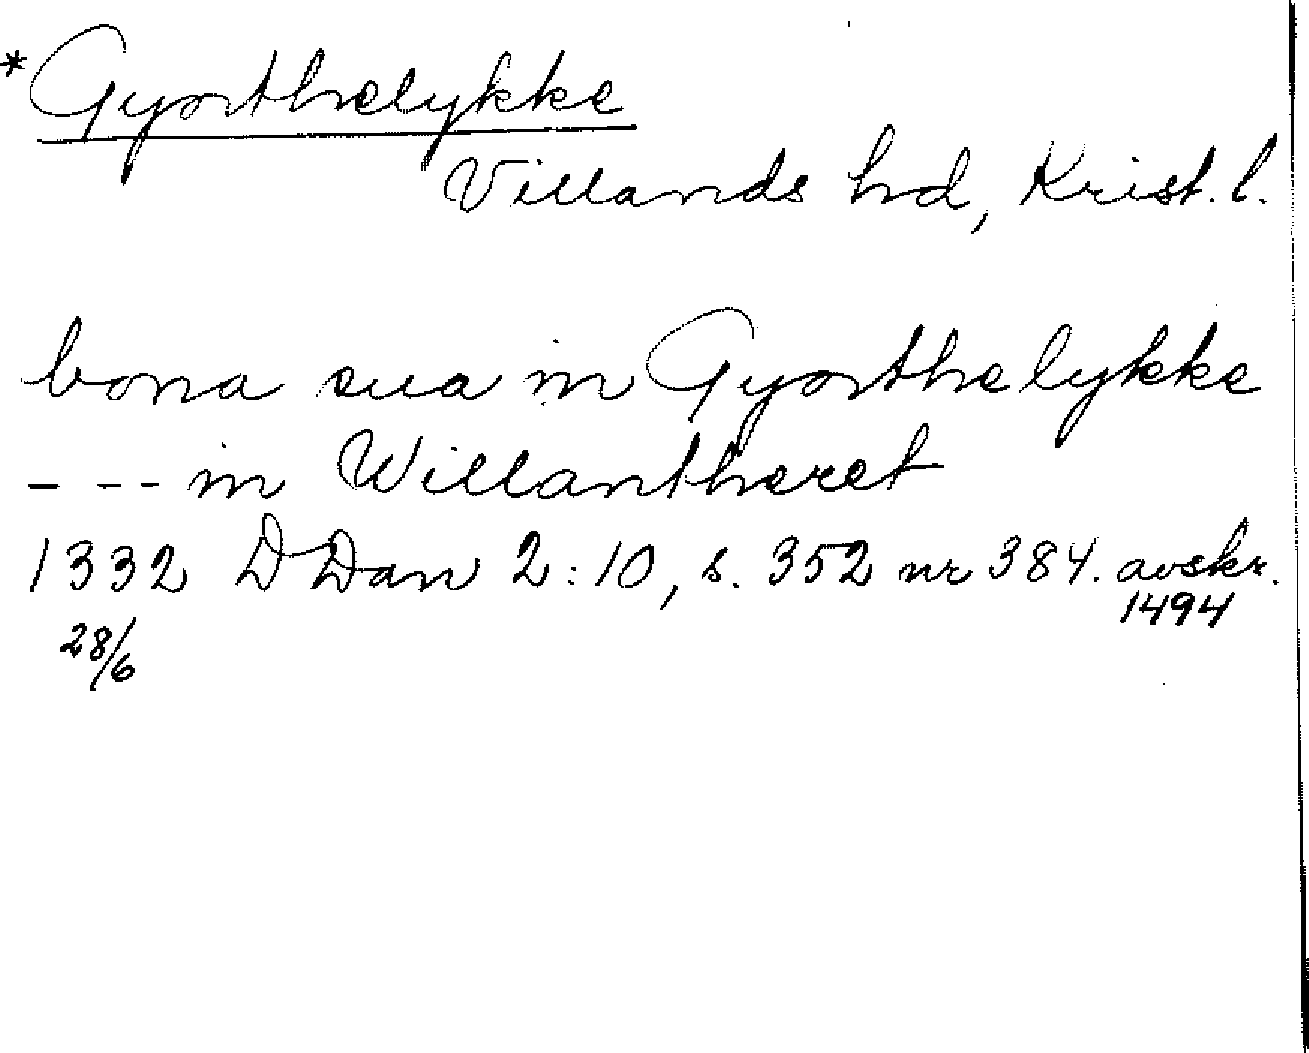 *Gyorthelykke
Villands hd, Krist. l.
bona sua in Gyorthelykke
- - - in Willantheret
1332 DDan 2:10, s. 352 nr 384. avskr.
28/6 1494